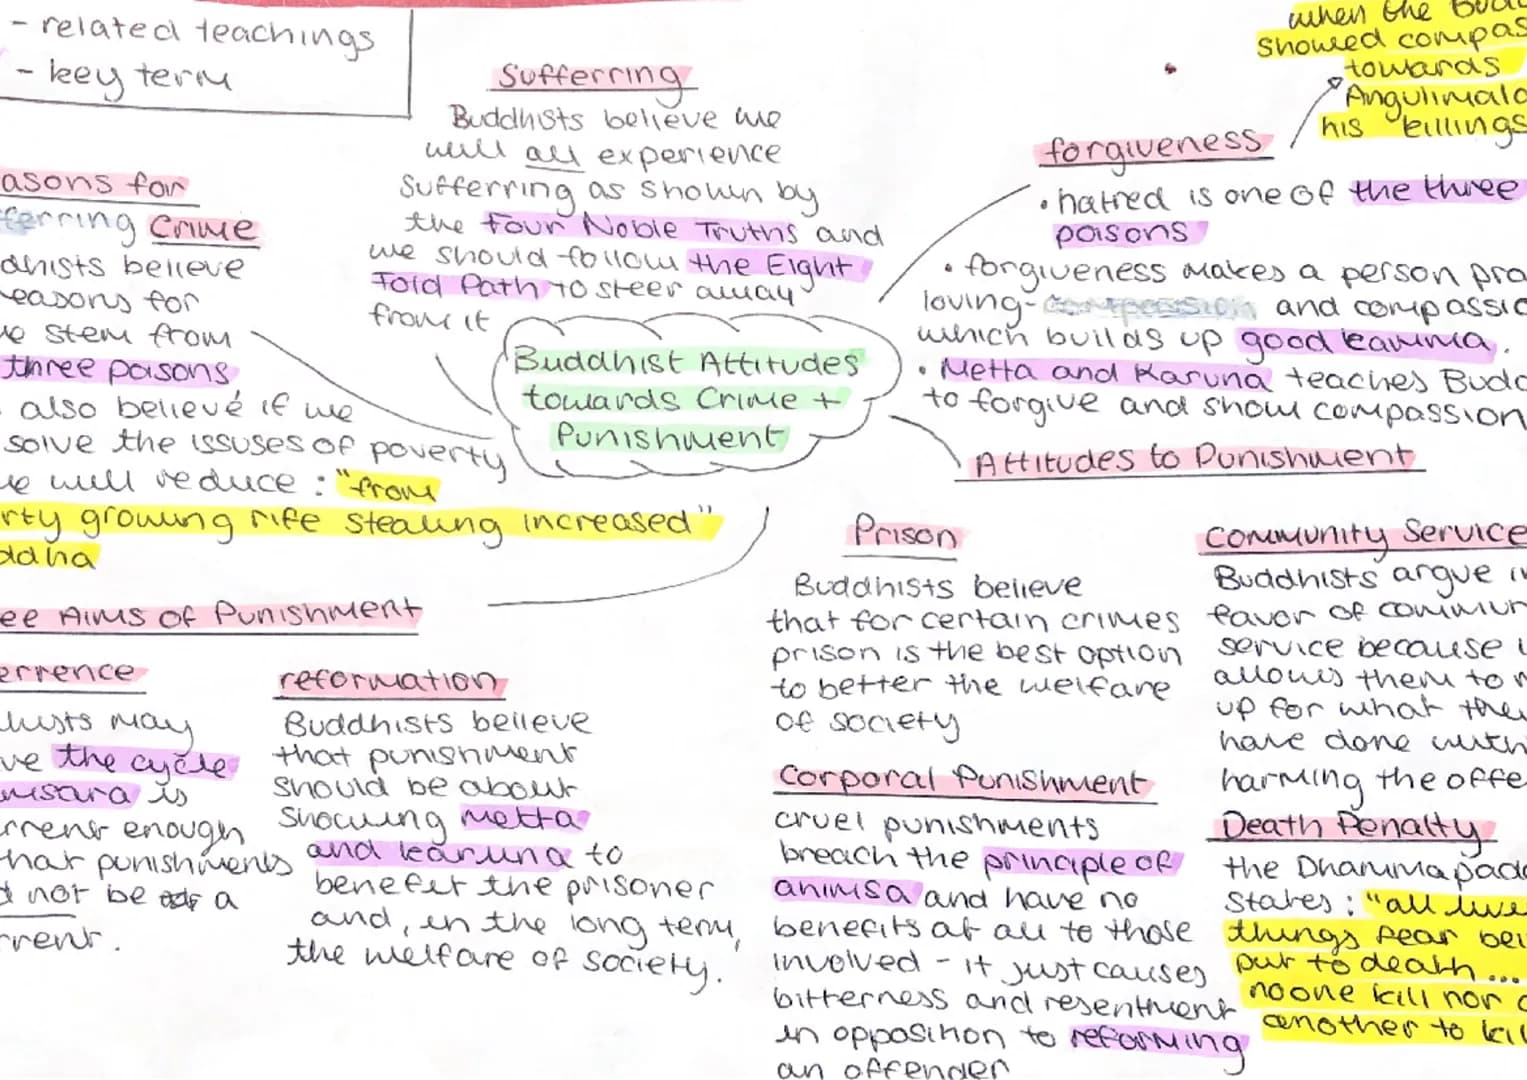 - related teachings
- key term
Sufferring
Buddhists believe we
will all experience
Sufferring as shown by
the Four Noble Truths and
we should follow the Eight
Fold Path to steer away
from it
when the
showed compas
towards
Angulimala
his killings
forgiveness
• hatred is one of the three
poisons
• forgiveness makes a person pra
loving- and compassio
which builds up good kamma.
• Metta and Karuna teaches Budd
to forgive and show compassion
asons for
ferring Crime
dhists believe
easons for
stem from
three poisons
also believe if we
solve the issuses of poverty
we will reduce : "from
rty growing rife stealing increased"
ddha
Buddhist Attitudes
towards Crime +
Punishment
Attitudes to Punishment
ee Aims of Punishment
errence
hists may
ve the cycle
msara is
rrent enough
that punishments
not be a
rrent.
reformation
Buddhists believe
that punishment
should be about
showing metta
and karuna to
benefit the prisoner
and, in the long term,
the welfare of society.
Prison
Buddhists believe
that for certain crimes
prison is the best option
to better the welfare
of society
Corporal Punishment
cruel punishments
breach the principle of
ahimsa and have no
benefits at all to those
involved - it just causes
bitterness and resentment
in opposition to reforming
an offender
Community Service
Buddhists argue in
favor of commun
service because i
allows them to m
up for what the
have done with
harming the offe
Death Penalty
the Dhammapada
states : "all live
things fear bei
put to death...
noone kill nor c
another to kil